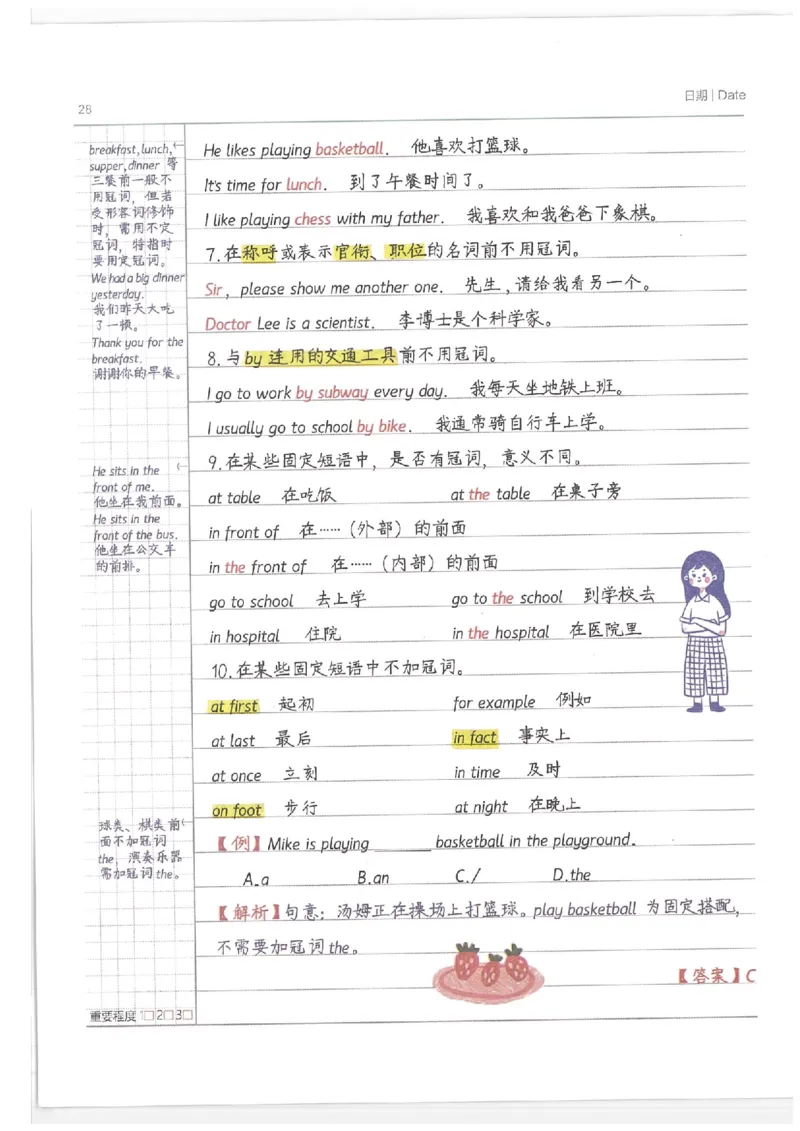 28
日期 | Date
breakfast, lunch,
supper, dinner 等
三餐前一般不
用冠词，但若
受形容词修饰
时，需用不定
冠词，特指时
要用定冠词。
We had a big dinner
yesterday.
我们昨天大吃
了一顿。
Thank you for the
breakfast.
谢谢你的早餐。
He sits in the
front of me.
他坐在我前面。
He sits in the
front of the bus.
他坐在公交车
的前排。
球类、棋类前
面不加冠词
the，演奏乐器
需加冠词 the。
He likes playing basketball. 他喜欢打篮球。
It's time for lunch. 到了午餐时间了。
I like playing chess with my father. 我喜欢和我爸爸下象棋。
7.在称呼或表示官衔、职位的名词前不用冠词。
Sir, please show me another one. 先生,请给我看另一个。
Doctor Lee is a scientist. 李博士是个科学家。
8.与by 连用的交通工具前不用冠词。
I go to work by subway every day. 我每天坐地铁上班。
I usually go to school by bike. 我通常骑自行车上学。
9.在某些固定短语中，是否有冠词，意义不同。
at table 在吃饭 at the table 在桌子旁
in front of 在……（外部）的前面
in the front of 在……（内部）的前面
go to school 去上学 go to the school 到学校去
in hospital 住院 in the hospital 在医院里
10.在某些固定短语中不加冠词。
at first 起初 for example 例如
at last 最后 in fact 事实上
at once 立刻 in time 及时
on foot 步行 at night 在晚上
【例】Mike is playing ______ basketball in the playground.
A.a B.an C./ D.the
【解析】句意：汤姆正在操场上打篮球。play basketball 为固定搭配，
不需要加冠词 the。
【答案】C
重要程度 1□ 2□ 3□